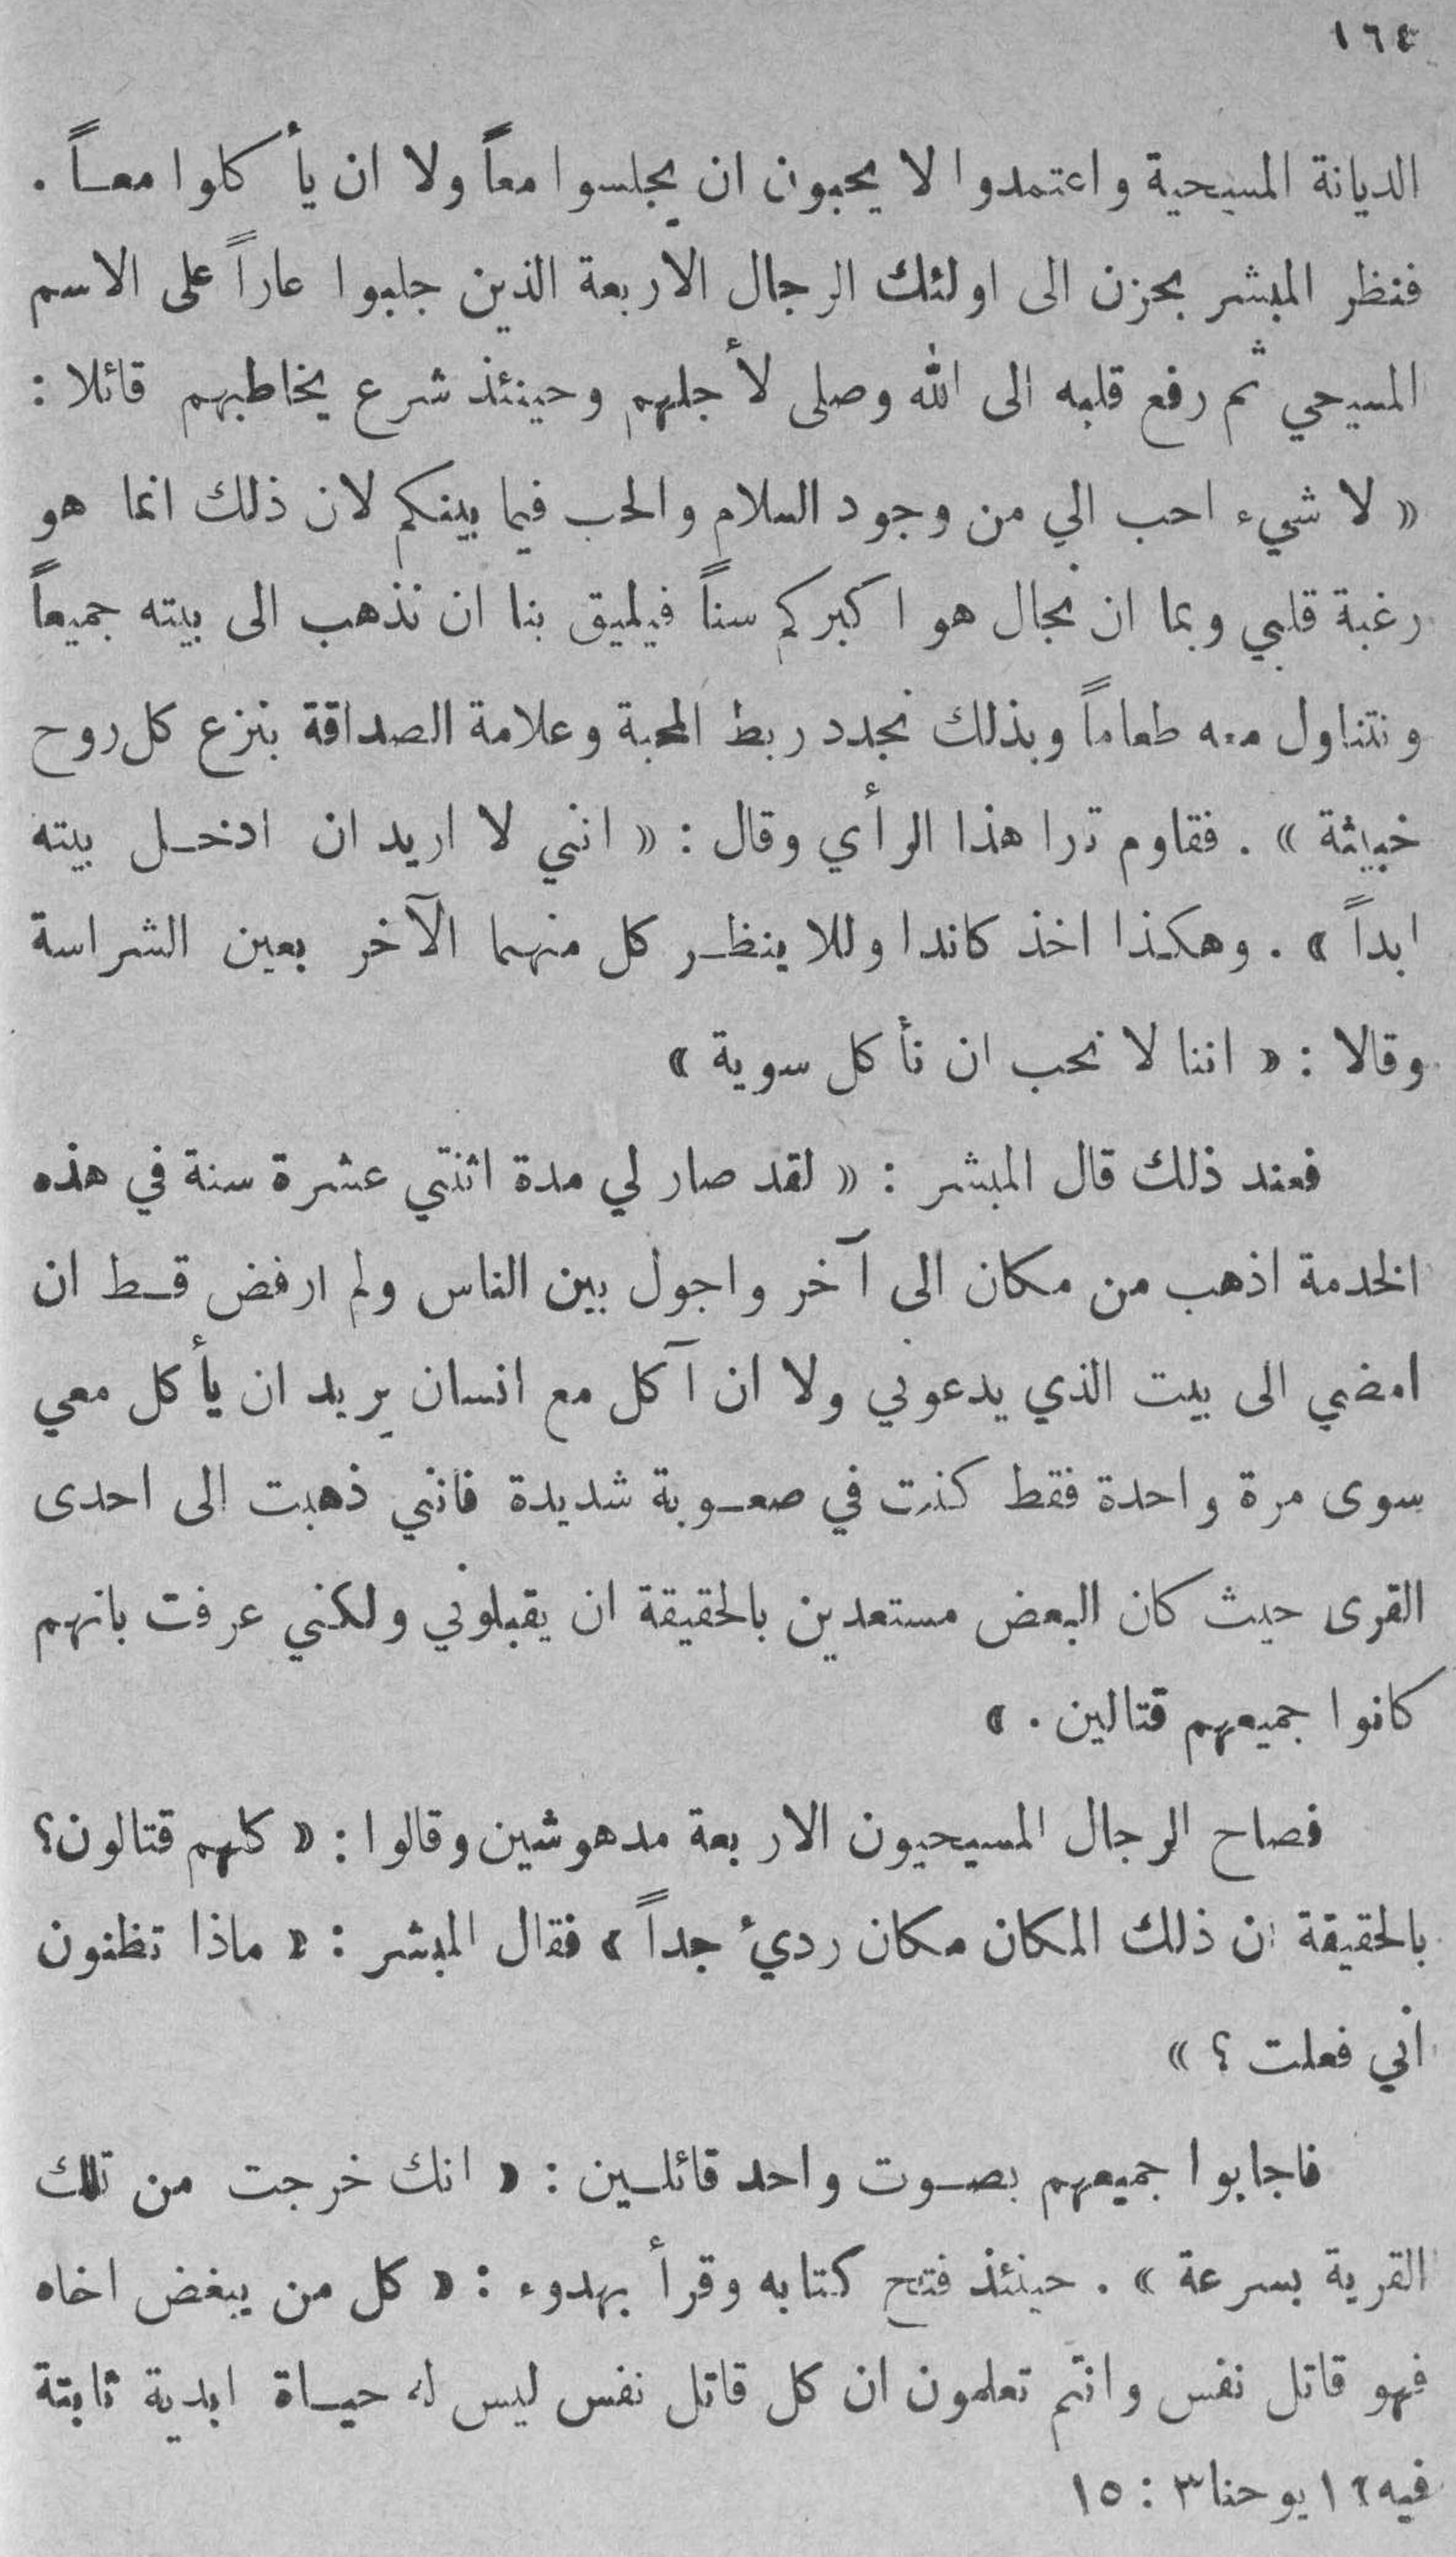 ١٦٤
الديانة المسيحية واعتمدوا لا يحبون ان يجلسوا معاً ولا ان يأكلوا معـاً .
فنظر المبشر بحزن الى اولئك الرجال الاربعة الذين جلبوا عاراً على الاسم
المسيحي ثم رفع قلبه الى الله وصلى لأجلهم وحينئذ شرع يخاطبهم قائلا :
« لا شيء احب الي من وجود السلام والحب فيما بينكم لان ذلك انما هو
رغبة قلبي وبما ان نجال هو اكبركم سناً فيليق بنا ان نذهب الى بيته جميعاً
ونتناول معه طعاماً وبذلك نجدد ربط المحبة وعلامة الصداقة بنزع كل روح
خبيثة » . فقاوم ترا هذا الرأي وقال : « انني لا اريد ان ادخـل بيته
ابداً » . وهكذا اخذ كاندا وللا ينظـر كل منهما الآخر بعين الشراسة
وقالا : « اننا لا نحب ان نأكل سوية »
فعند ذلك قال المبشر : « لقد صار لي مدة اثنتي عشرة سنة في هذه
الخدمة اذهب من مكان الى آخر واجول بين الناس ولم ارفض قـط ان
امضي الى بيت الذي يدعوني ولا ان آكل مع انسان يريد ان يأكل معي
سوى مرة واحدة فقط كنت في صعـوبة شديدة فانني ذهبت الى احدى
القرى حيث كان البعض مستعدين بالحقيقة ان يقبلوني ولكني عرفت بانهم
كانوا جميعهم قتالين . »
فصاح الرجال المسيحيون الاربعة مدهوشين وقالوا : « كلهم قتالون؟
بالحقيقة ان ذلك المكان مكان رديٴ جداً » فقال المبشر : « ماذا تظنون
أني فعلت ؟ »
فاجابوا جميعهم بصـوت واحد قائلـين : « انك خرجت من تلك
القرية بسرعة » . حينئذ فتح كتابه وقرأ بهدوء : « كل من يبغض اخاه
فهو قاتل نفس وانتم تعلمون ان كل قاتل نفس ليس له حيـاة ابدية ثابتة
فيه » ١ يوحنا ٣ : ١٥